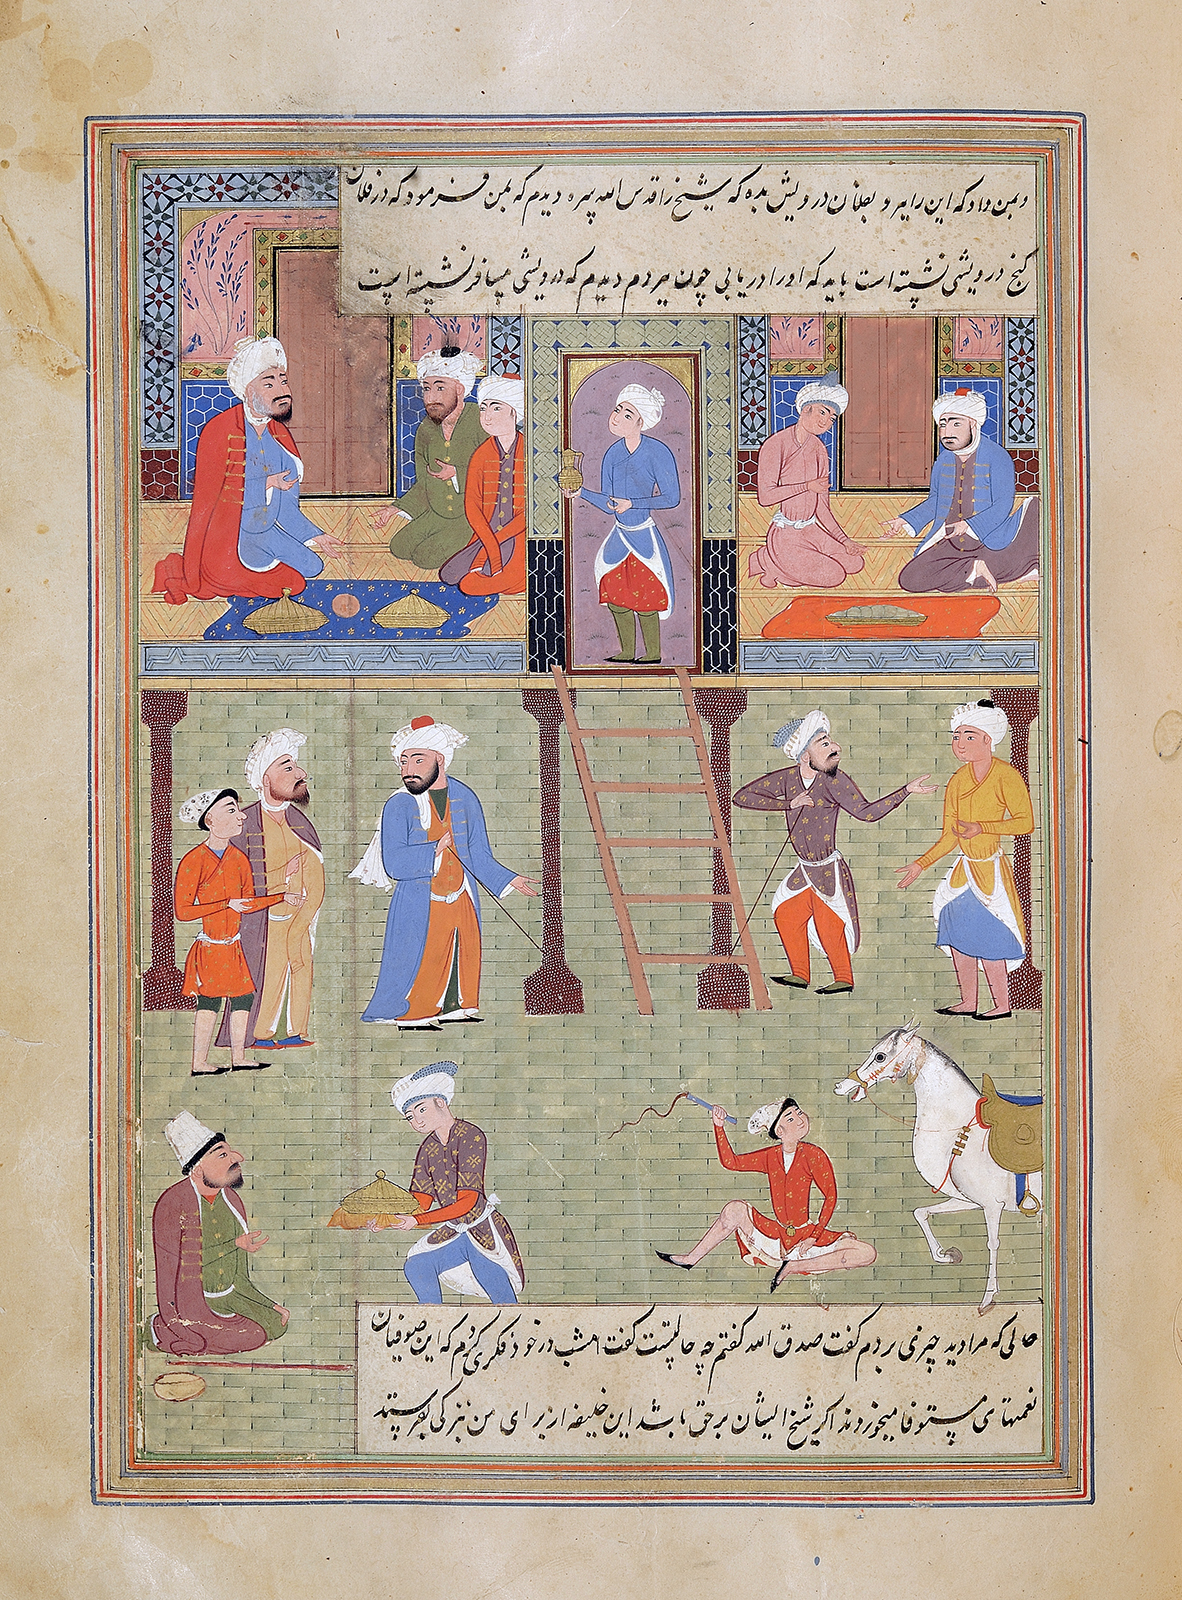 و بمن داد که این را ببر و بفلان درویش بده که شیخ را قدس الله سره دیدم که بمن فرمود که در فلان
کنج درویشی نشسته است باید که او را دریابی چون ببردم دیدم که درویشی مسافر نشسته است
حالی که مرا دید چیزی بردم گفت صدق الله گفتم چه حالتست گفت امشب در خود فکری کردم که این صوفیان
نعمتهای مستوفا میخوردند اگر شیخ ایشان بر حق باشد این خلیفه از برای من نیز کی بفرستد